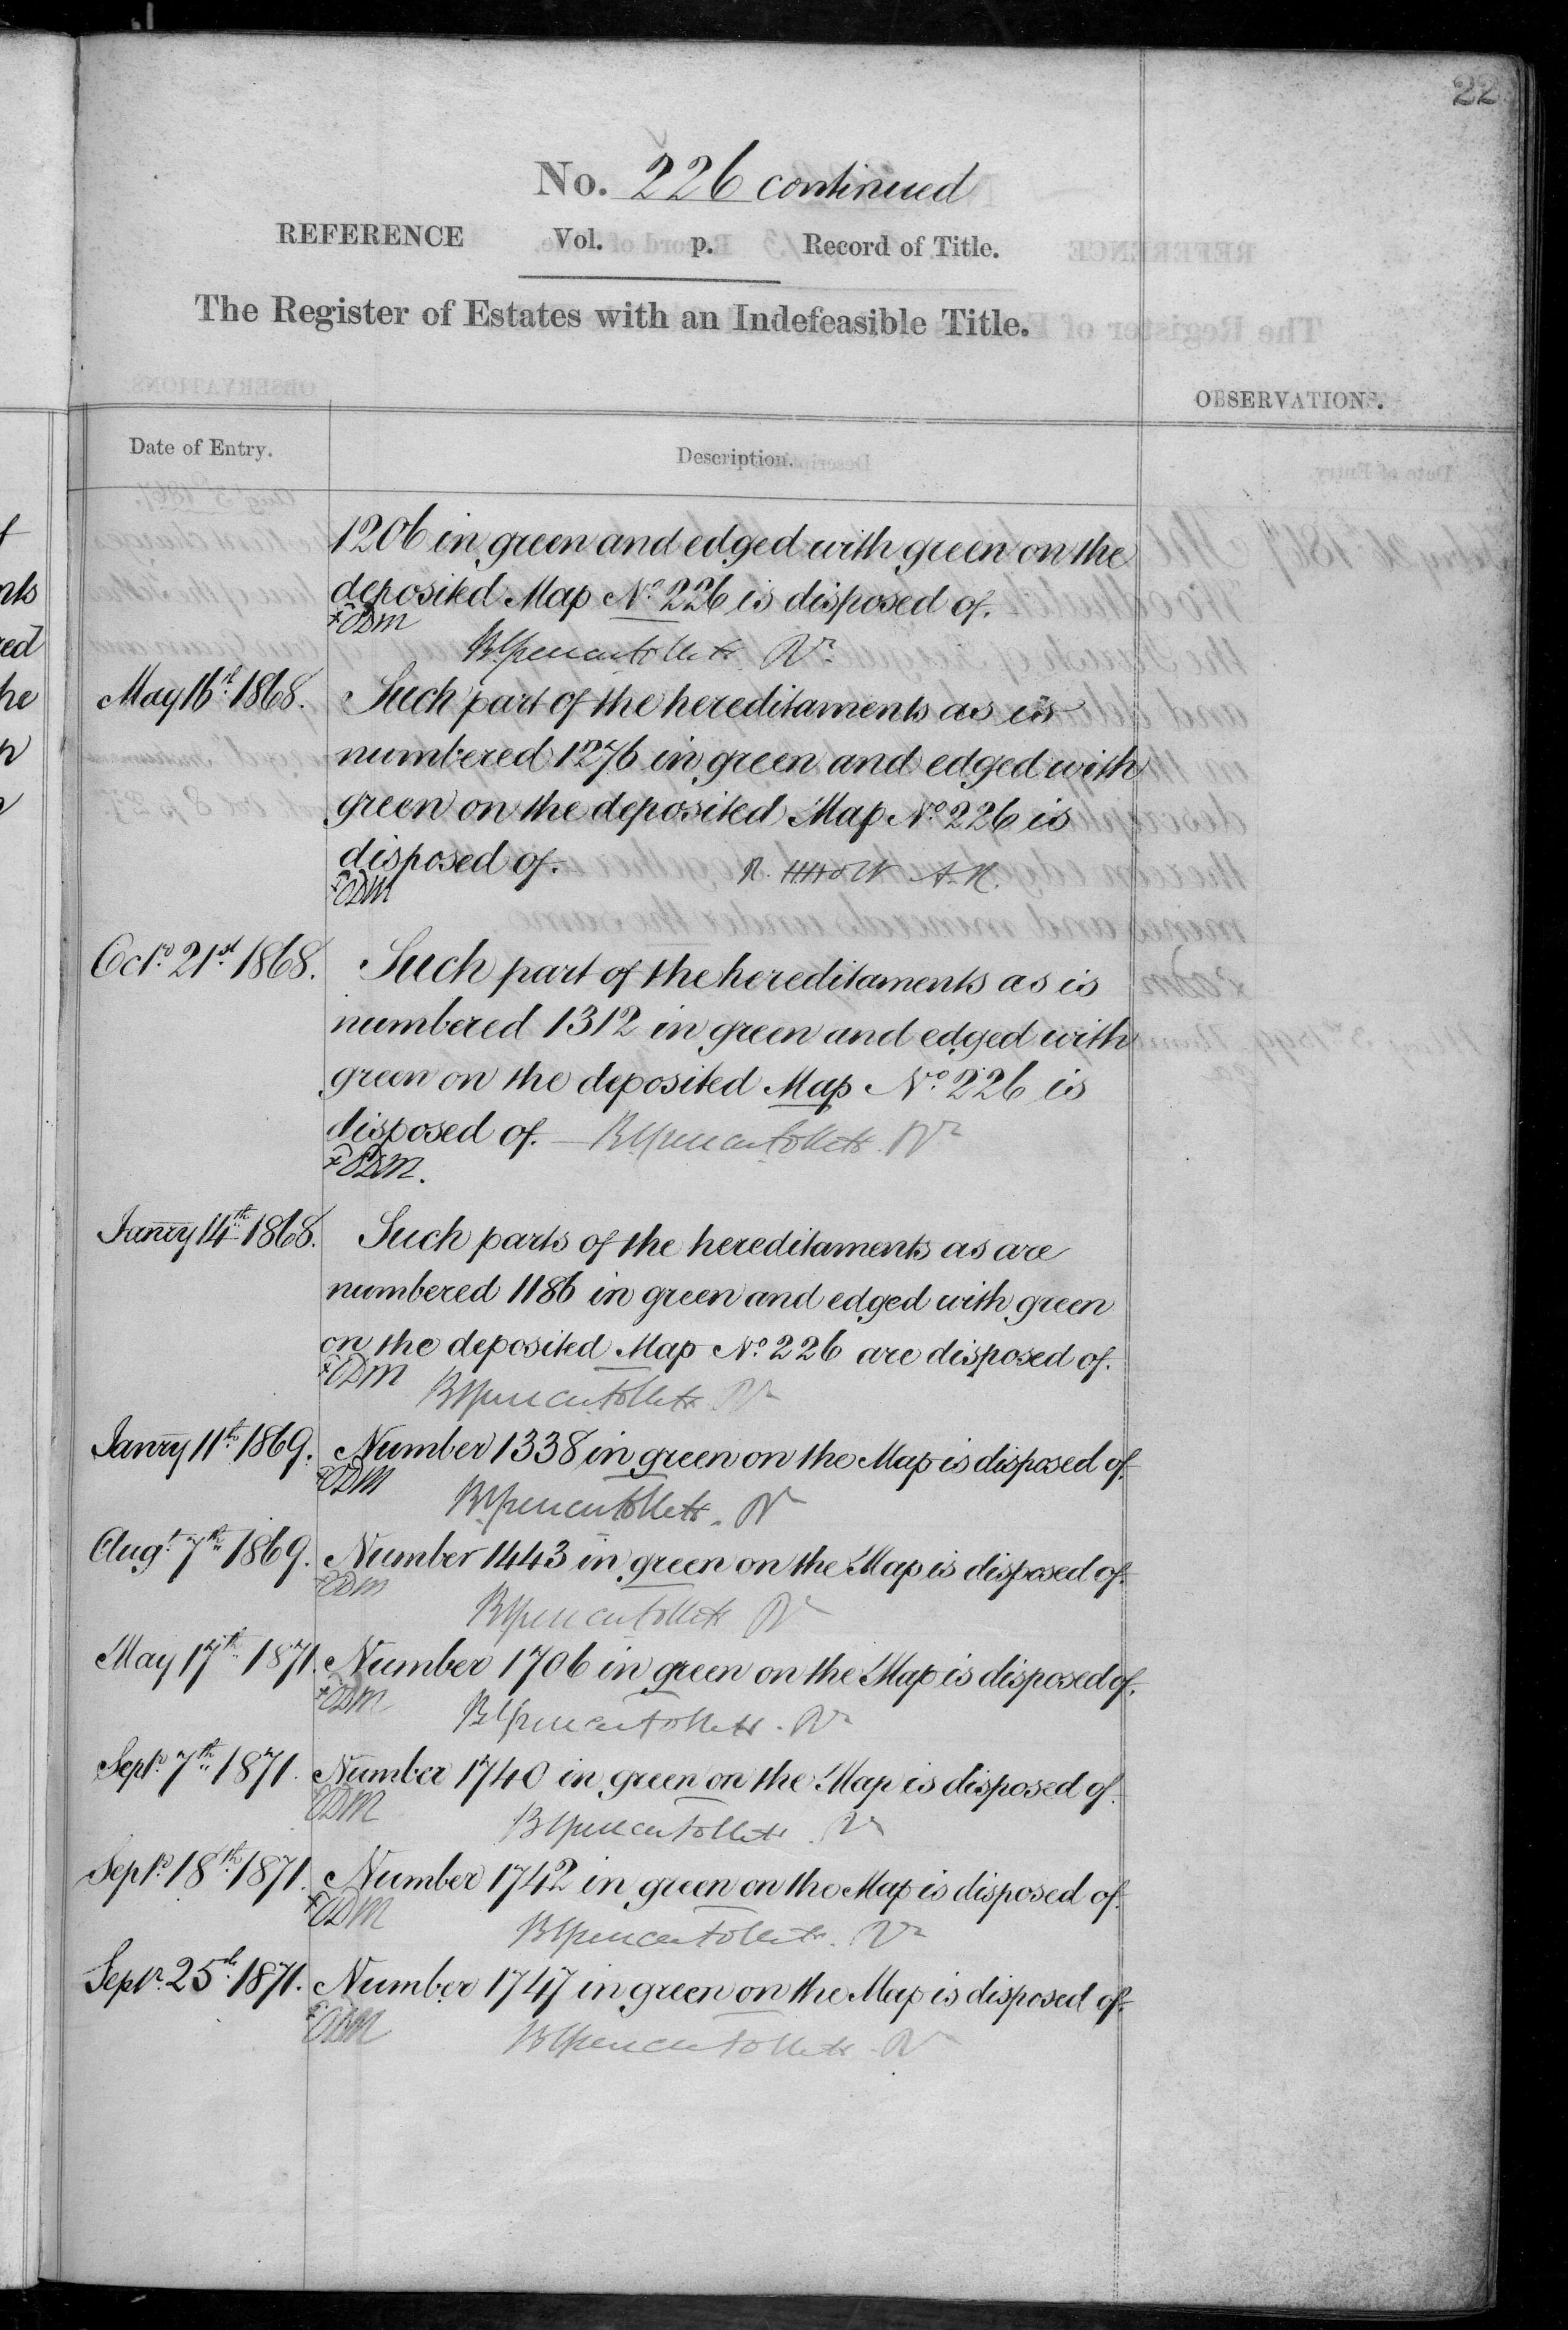 22
No. 226 continued
REFERENCE Vol. p. Record of Title.
The Register of Estates with an Indefeasible Title.
OBSERVATIONS.
Date of Entry. Description.
1206 in green and edged with green on the
deposited Map No. 226 is disposed of.
Rr.
May 16th 1868. Such part of the hereditaments as is
numbered 1276 in green and edged with
green on the deposited Map No. 226 is
disposed of. A.R.
Octr. 21st 1868. Such part of the hereditaments as is
numbered 1312 in green and edged with
green on the deposited Map No. 226 is
disposed of. Rr
Janry 14th 1868. Such parts of the hereditaments as are
numbered 1186 in green and edged with green
on the deposited Map No. 226 are disposed of.
Rr
Janry 11th 1869. Number 1338 in green on the Map is disposed of.
Rr
Augt. 7th 1869. Number 1443 in green on the Map is disposed of.
Rr
May 17th 1871. Number 1706 in green on the Map is disposed of.
Rr
Septr. 7th 1871. Number 1740 in green on the Map is disposed of.
Rr
Septr. 18th 1871. Number 1742 in green on the Map is disposed of.
Rr
Septr. 25th 1871. Number 1747 in green on the Map is disposed of.
Rr